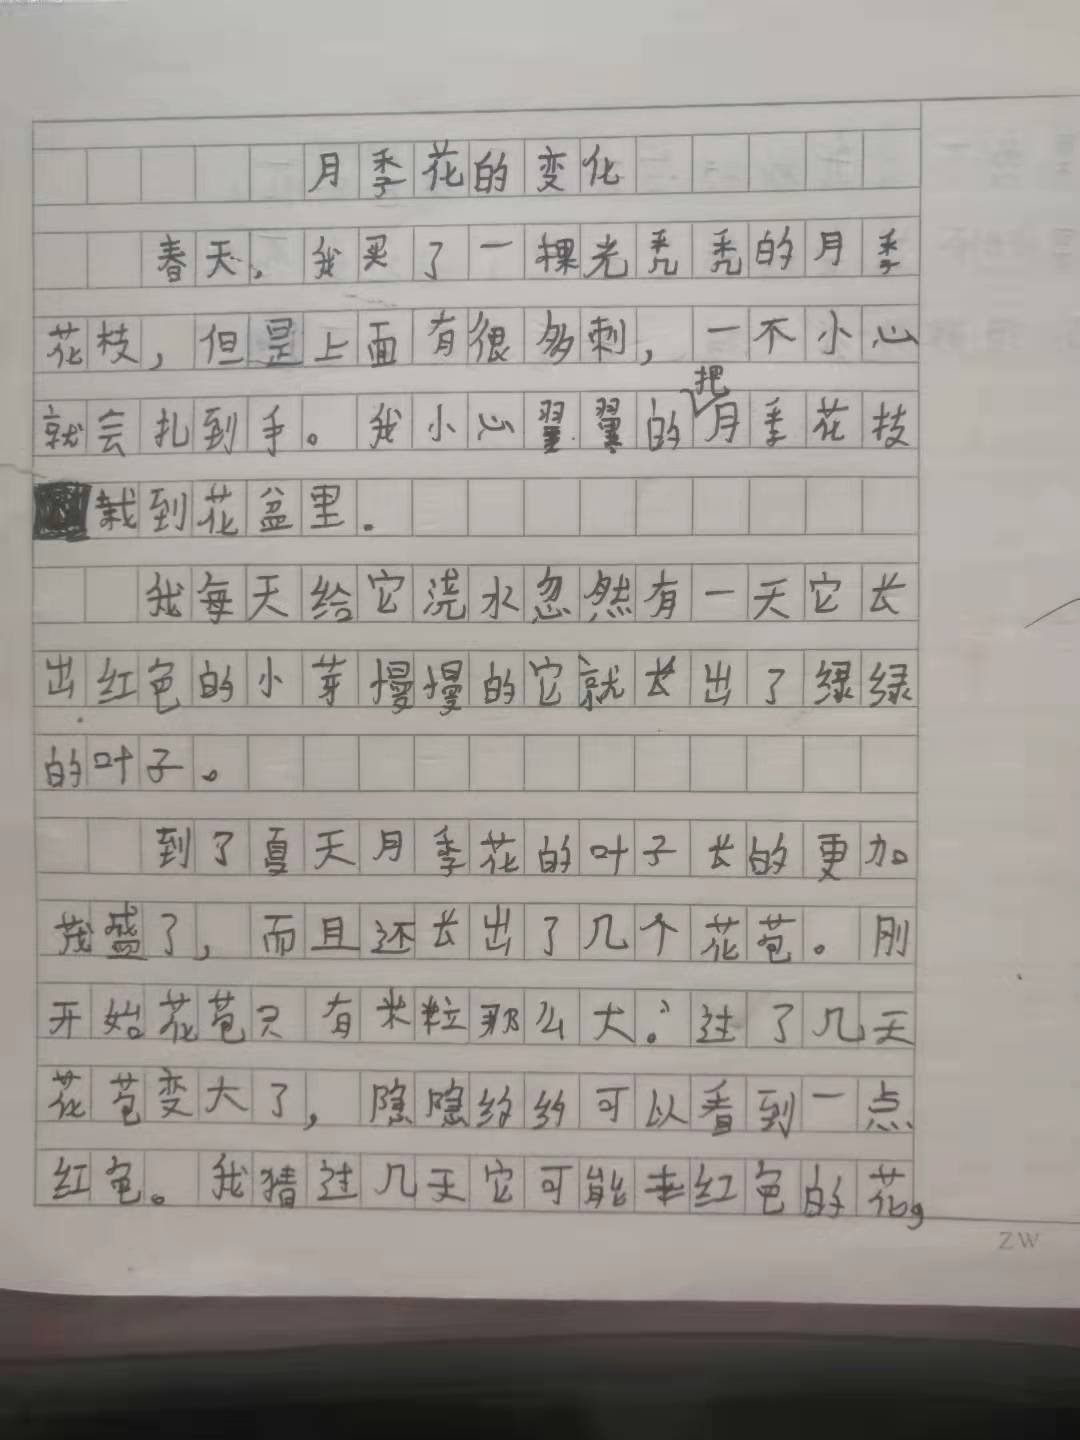 月季花的变化
春天，我买了一棵光秃秃的月季
花枝，但是上面有很多刺，一不小心
就会扎到手。我小心翼翼的把月季花技
栽到花盆里。
我每天给它浇水忽然有一天它长
出红色的小芽慢慢的它就长出了绿绿
的叶子。
到了夏天月季花的叶子长的更加
茂盛了，而且还长出了几个花苞。刚
开始花苞只有米粒那么大。过了几天
花苞变大了，隐隐约约可以看到一点
红色。我猜过几天它可能红色的花，
ZW